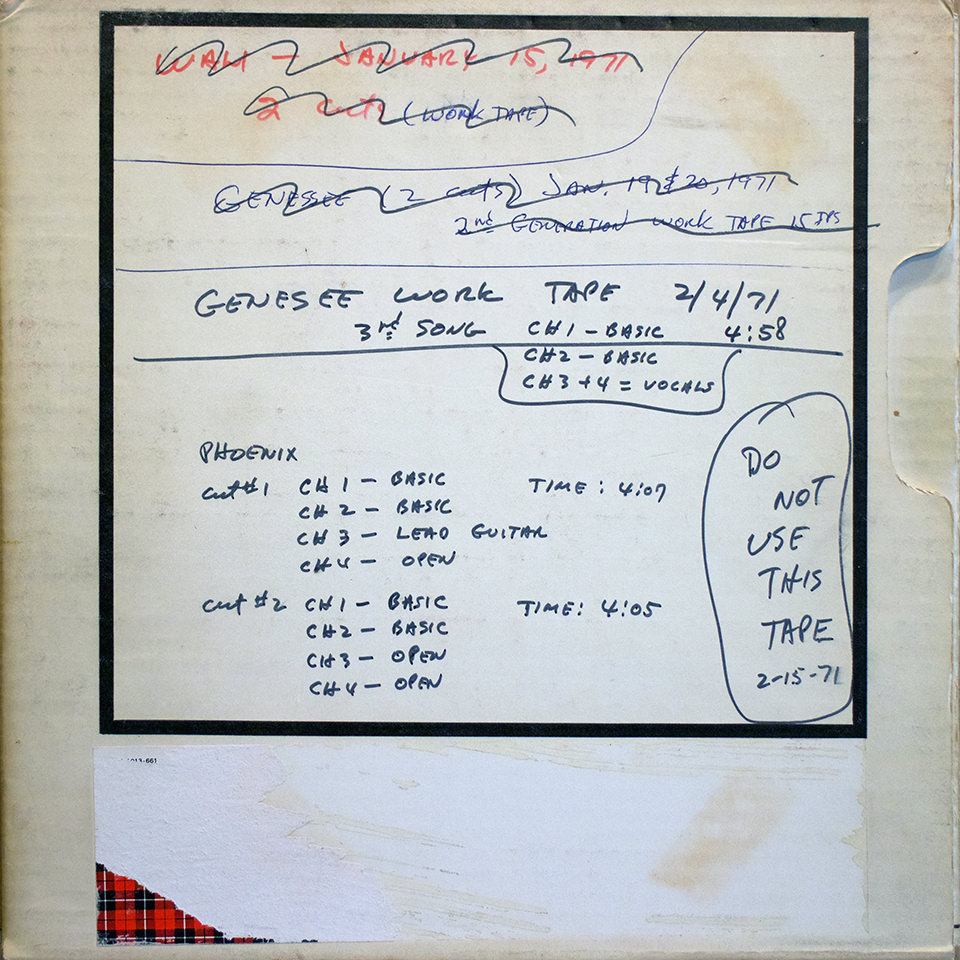 WALI - JANUARY 15, 1971
2 cuts (WORK TAPE)
GENESSEE (2 cuts) JAN. 19 & 20, 1971
2nd GENERATION WORK TAPE 15 IPS
GENESEE WORK TAPE 2/4/71
3rd SONG CH 1 - BASIC 4:58
CH 2 - BASIC
CH 3 + 4 = VOCALS
PHOENIX
cut #1 CH 1 - BASIC TIME: 4:07
CH 2 - BASIC
CH 3 - LEAD GUITAR
CH 4 - OPEN
cut #2 CH 1 - BASIC TIME: 4:05
CH 2 - BASIC
CH 3 - OPEN
CH 4 - OPEN
DO
NOT
USE
THIS
TAPE
2-15-71
013-661